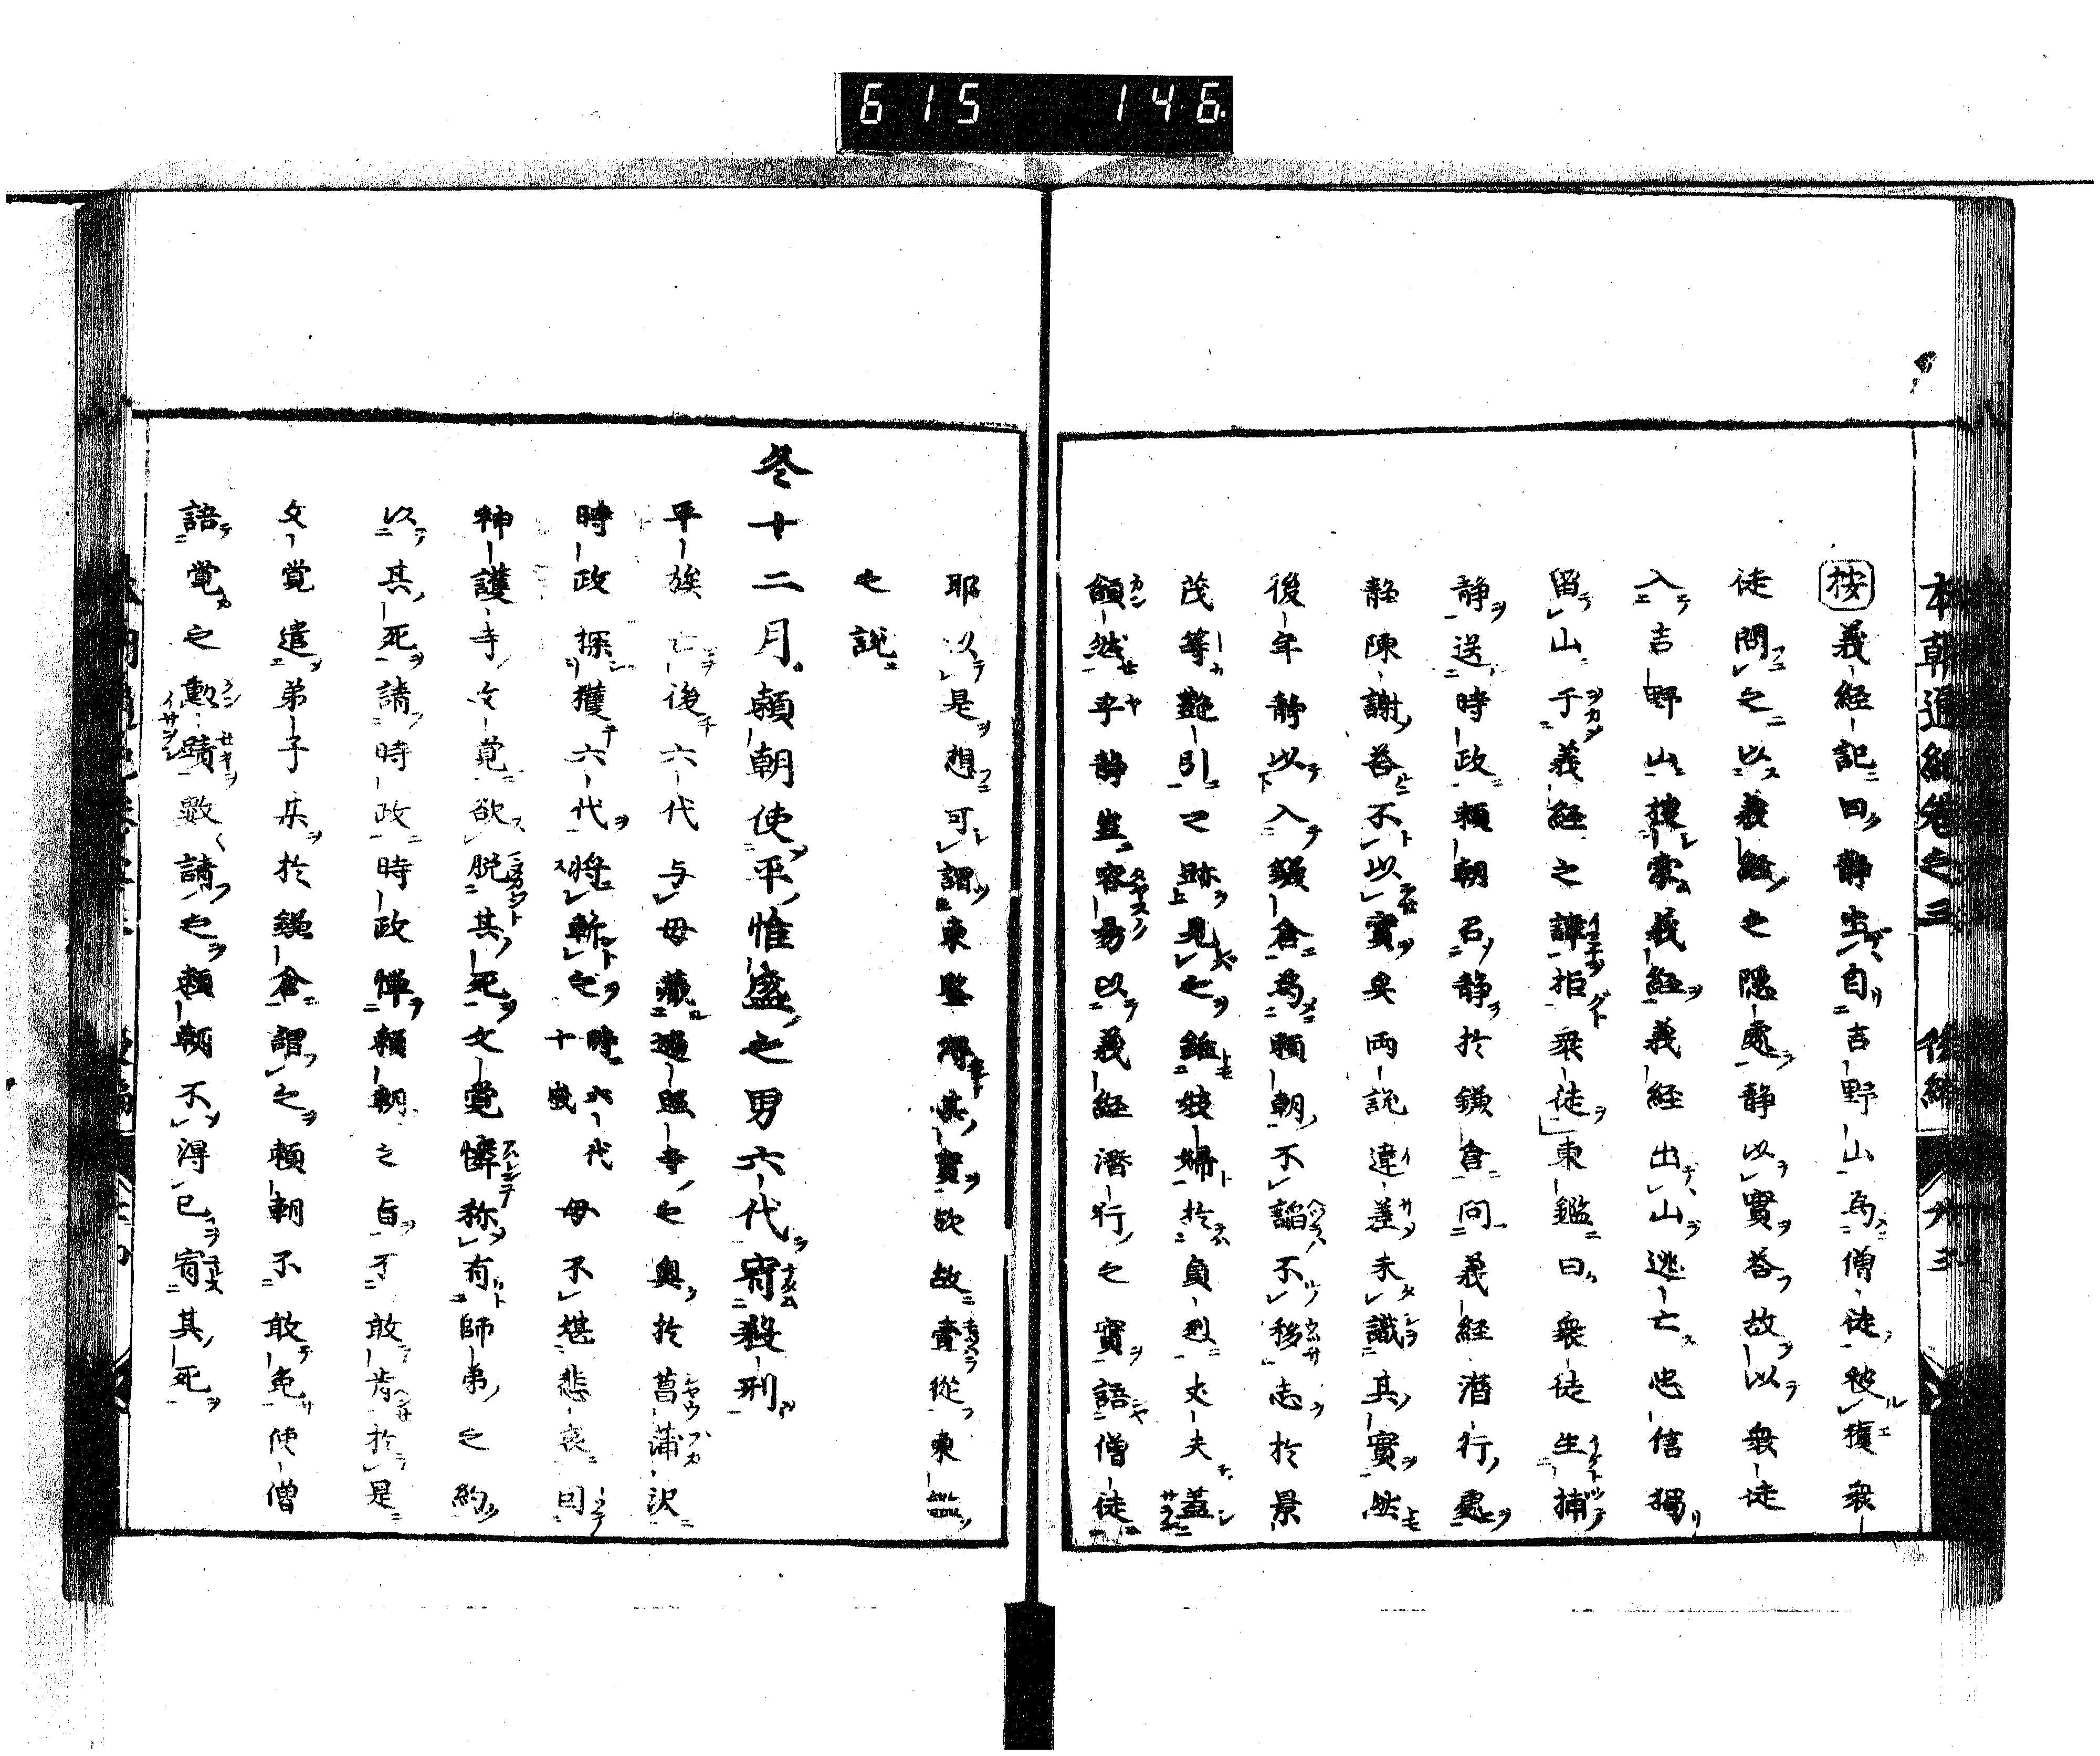 615 146
本朝通紀卷之三 後編 廿三
按義経記曰静出自吉野山為僧徒被獲衆
徒問之以義経之隠處静以實荅故以衆徒
入吉野山捜索義経義経出山逃亡忠信獨
留山于義経之諱拒衆徒東鑑曰衆徒生捕
静送時政頼朝召静於鎌倉問義経潜行處
静陳謝荅不以實矣両説違差未識其實然
後年静以入鎌倉為頼朝不諂不移志於景
茂等艶引之跡見之雖婢婦於貞烈丈夫蓋
頷然乎静豈容易以義経潜行之實語僧徒
耶以是想可謂東鑒得其實欤故壹從東鑑
之說
冬十二月頼朝使平惟盛之男六代宥殺刑
平族亡後六代与母藏遍照寺之奥於菖蒲沢
時政探獲六代将斬之時六代十歳母不堪悲哀因
神護寺文覚欲脱其死文覚憐称有師弟之約
以其死請時政時政憚頼朝之旨于敢肯於是
文覚遣弟子某於鎌倉謂之頼朝不敢免使僧
語覚之勲蹟數請之頼朝不得已宥其死